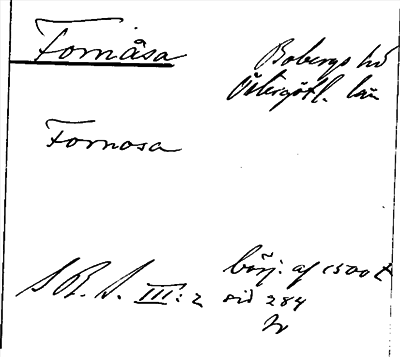 Fornåsa
Bobergs hd
Östergötl. län
Fornosa
börj: af 1500 t
S R S. III: 2 sid 284